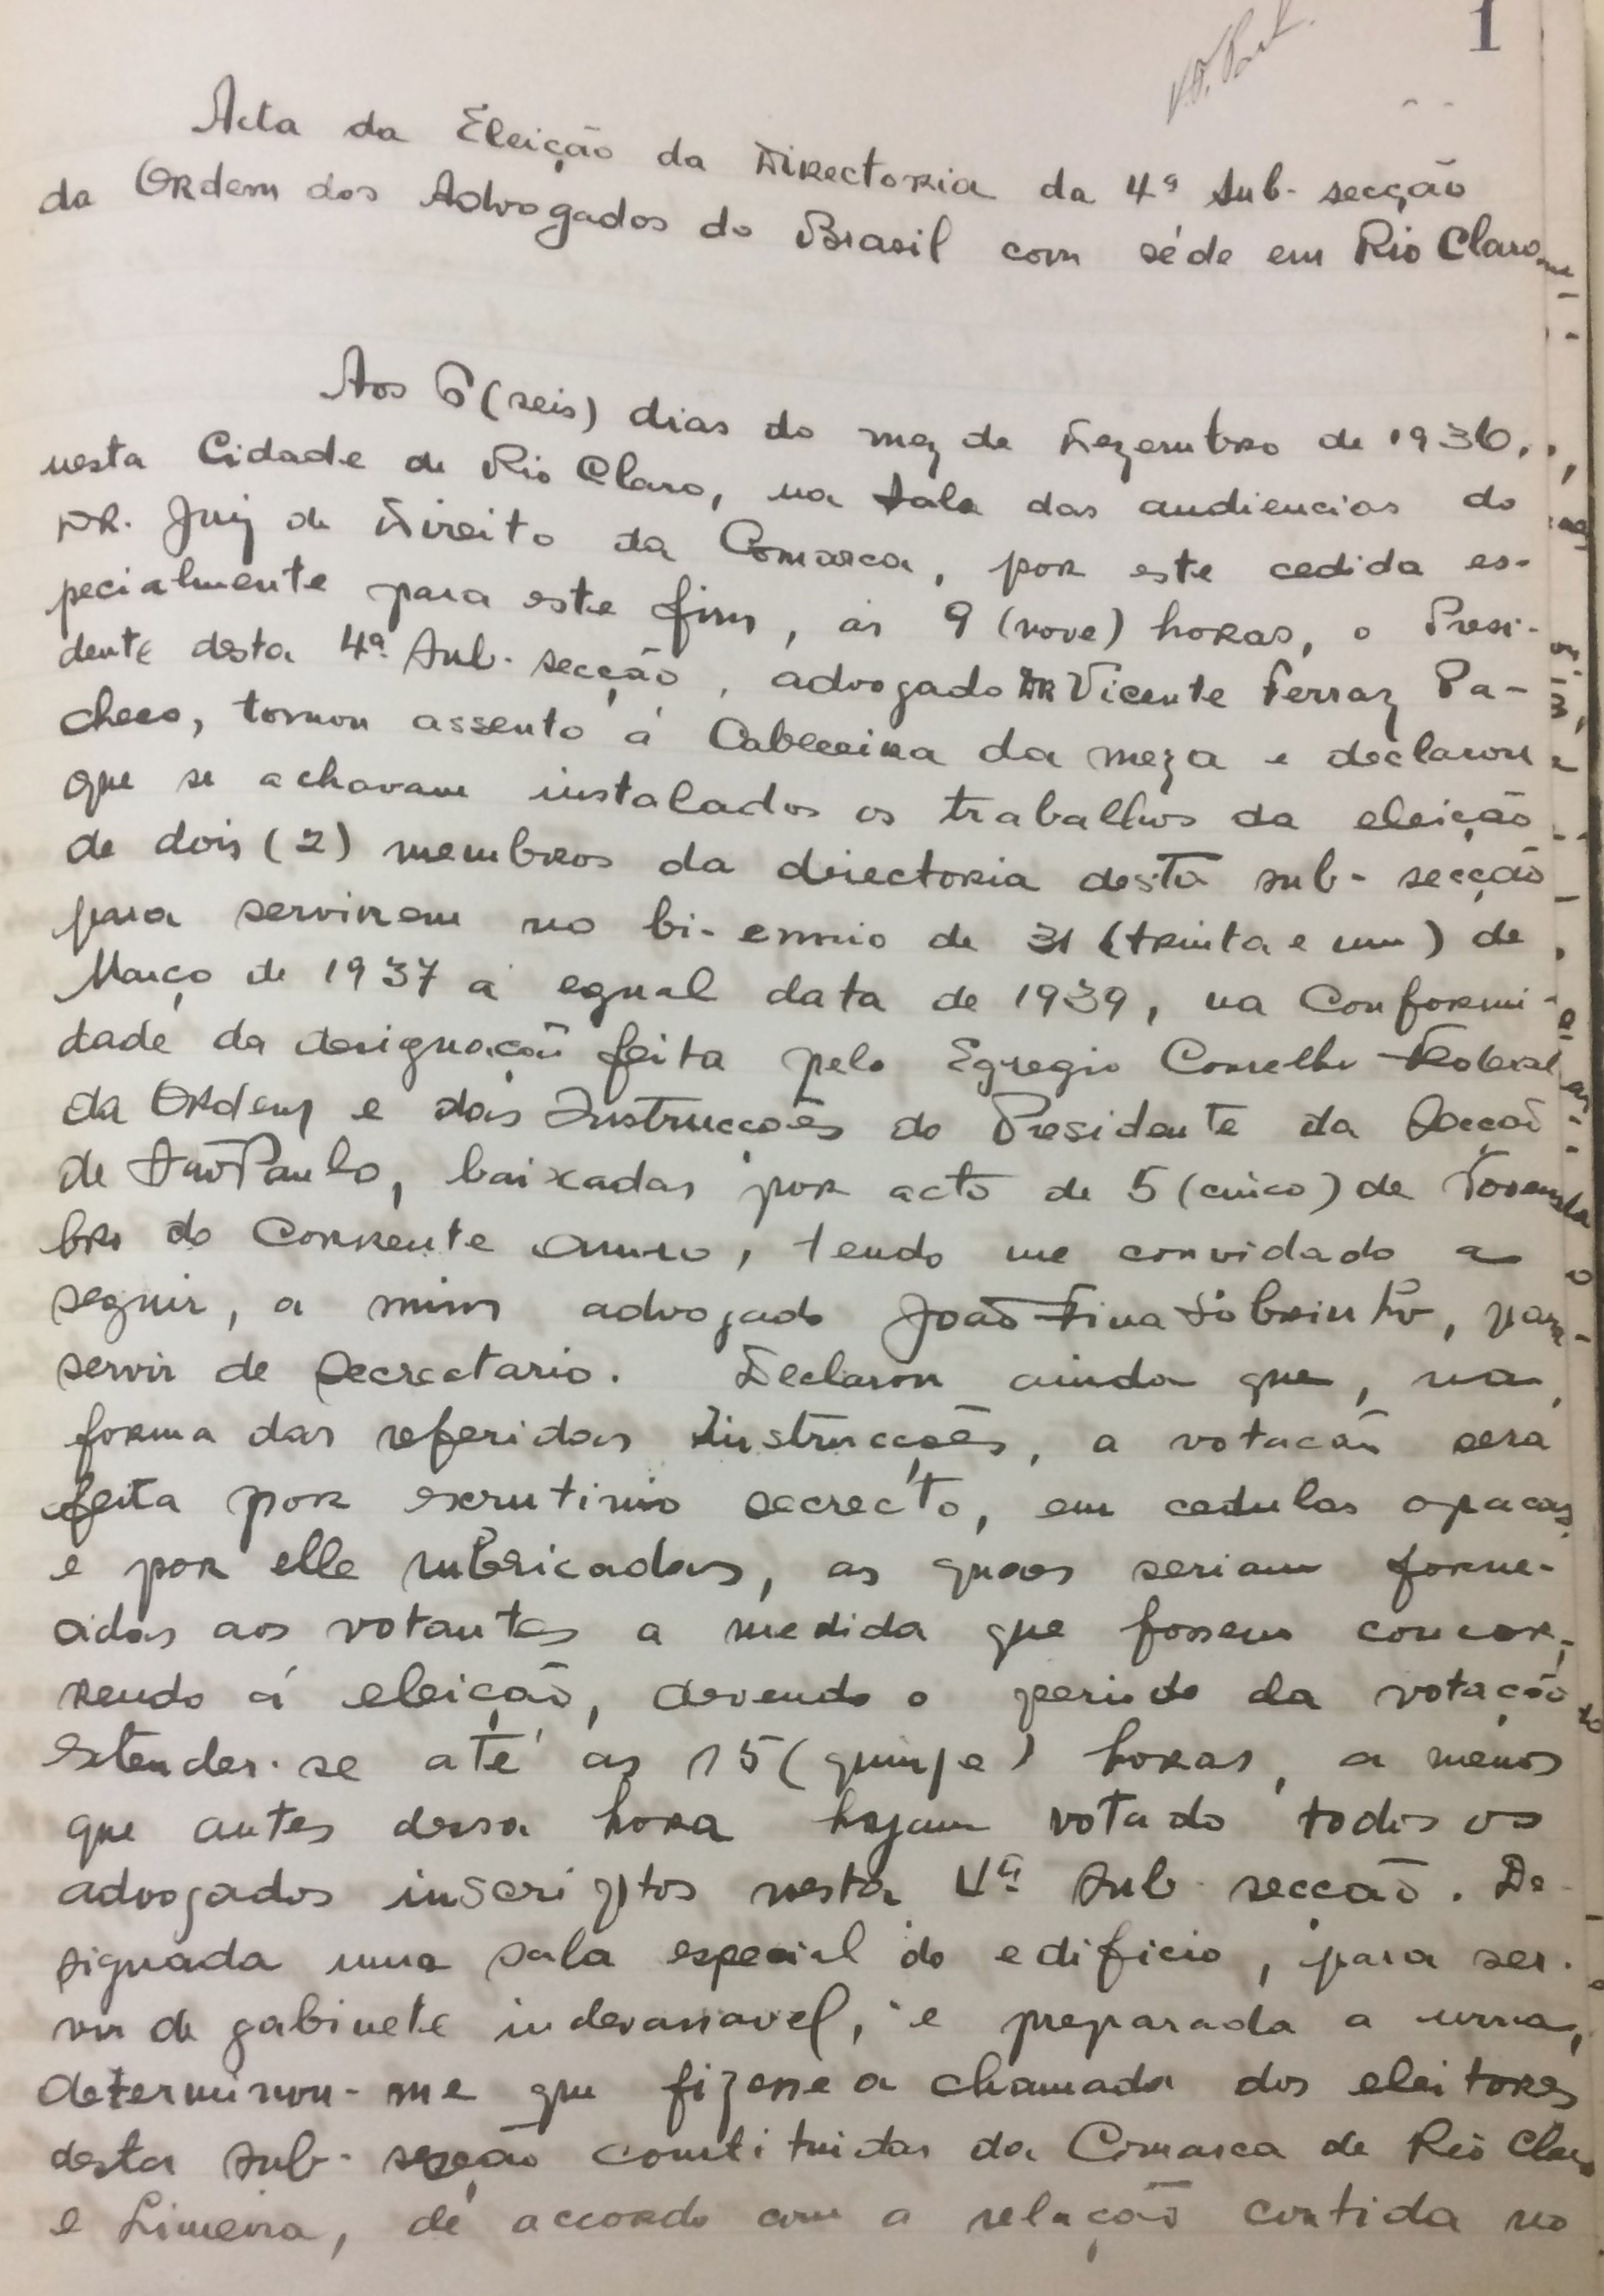 1
Acta da Eleição da Directoria da 4ª Sub-secção
da Ordem dos Advogados do Brasil com séde em Rio Claro
Aos 6 (seis) dias do mez de Dezembro de 1936,
nesta Cidade de Rio Claro, na sala das audiencias do
DR. Juiz de Direito da Comarca, por este cedida es-
pecialmente para este fim, ás 9 (nove) horas, o Presi-
dente desta 4ª Sub-secção, advogado DR Vicente Ferraz Pa-
checo, tomou assento á Cabeceira da meza e declarou
que se achavam instalados os trabalhos da eleição
de dois (2) membros da directoria desta sub-secção
para servirem no bi-ennio de 31 (trinta e um) de
Março de 1937 a egual data de 1939, na Conformi-
dade da designação feita pelo Egregio Conselho Federal
da Ordem e das Instrucções do Presidente da Secção
de São Paulo, baixadas por acto de 5 (cinco) de Novem-
bro do Corrente anno, tendo me convidado a
seguir, a mim advogado João Fina Sobrinho, para
servir de secrectario. Declarou ainda que, na
forma das referidas Instrucções, a votacão será
feita por escrutinio secrecto, em cedulas opacas
e por elle rubricadas, as quaes seriam forne-
cidas aos votantes a medida que fossem concor-
rendo á eleição, devendo o periodo da votação
estender-se até as 15 (quinze) horas, a menos
que antes dessa hora hajam votado todos os
advogados inscriptos nesta 4ª Sub secção. De-
signada uma sala especial do edificio, para ser-
vir de gabinete indevassavel, e preparada a urna,
determinou-me que fizesse a chamada dos eleitores
desta sub-secção constituidas da Comarca de Rio Claro
e Limeira, de accordo com a relação contida no